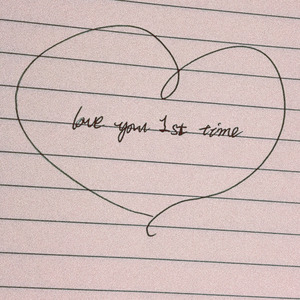 love you 1st time